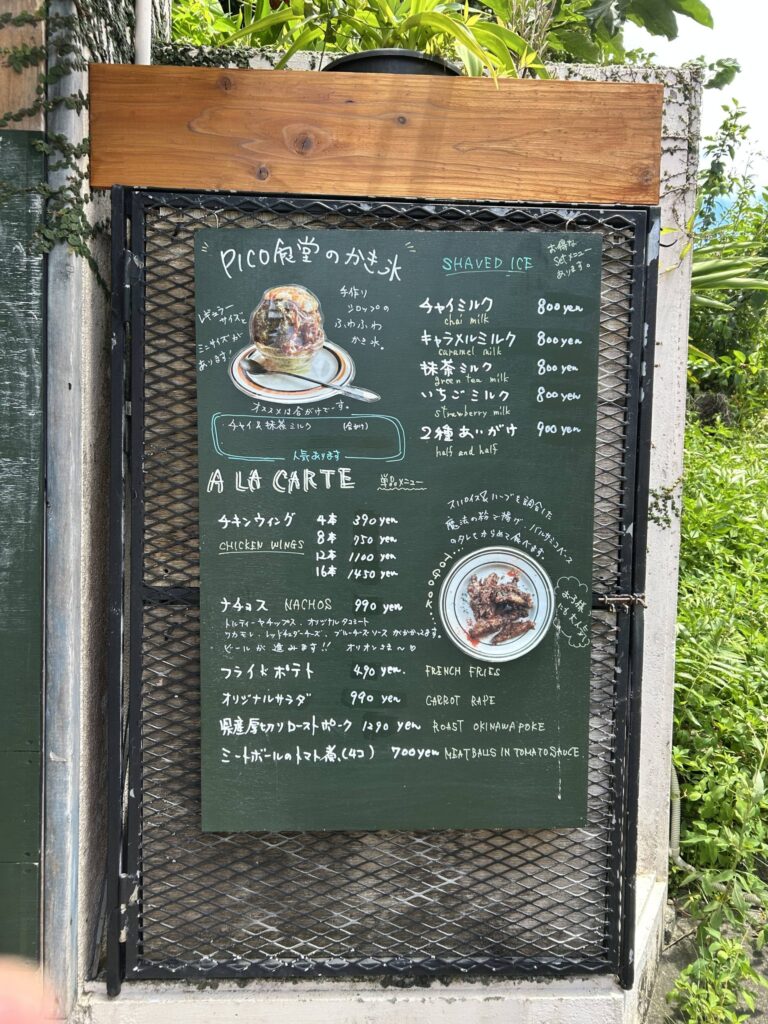 PICO食堂のかき氷
レギュラー
サイズと
ミニサイズが
あります!
手作り
シロップの
ふわふわ
かき氷。
オススメは合がけで〜す。
・チャイ&抹茶ミルク (合がけ)
人気あります
SHAVED ICE
お得な
setメニュー
あります。
チャイミルク 800yen
chai milk
キャラメルミルク 800yen
caramel milk
抹茶ミルク 800yen
green tea milk
いちごミルク 800yen
strawberry milk
2種あいがけ 900yen
half and half
A LA CARTE 単品メニュー
チキンウィング 4本 390yen
CHICKEN WINGS 8本 750yen
12本 1100yen
16本 1450yen
スパイス&ハーブを調合した
魔法の粉で揚げ、バルサミコベース
のタレをからめて食べます。
お子様
にも大人気
ナチョス NACHOS 990yen
トルティーヤチップス、オリジナルタコミート
ワカモレ、レッドチェダーチーズ、ブルーチーズソースがかかってます。
ビールが進みます!! オリオンさま〜
フライドポテト 490yen. FRENCH FRIES
オリジナルサラダ 990yen CARROT RAPE
県産厚切りローストポーク 1290yen ROAST OKINAWA POKE
ミートボールのトマト煮(4コ) 700yen MEATBALLS IN TOMATO SAUCE